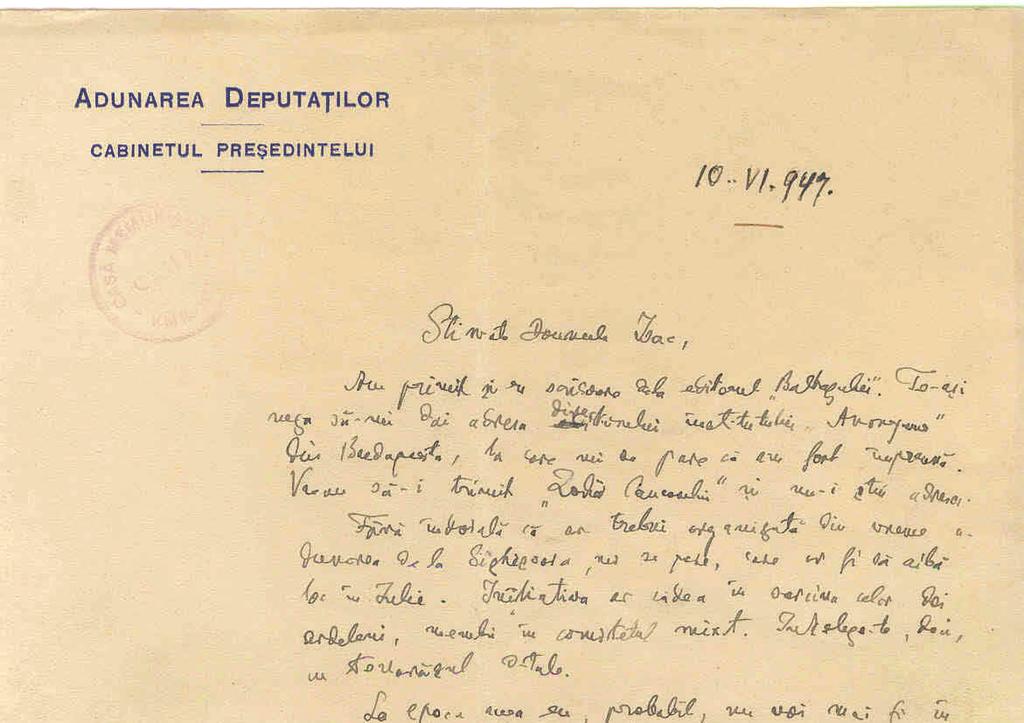 ADUNAREA DEPUTAȚILOR
CABINETUL PREȘEDINTELUI
10.. VI. 947.
CASA
Stimate Domnule Isac,
Am primit și eu scrisoare dela editorul „Baltagului”. Te-ași
ruga să-mi dai adresa directorului institutului „Anonymus”
din Budapesta, la care mi se pare că am fost împreună.
Vreau să-i trimit „Zodia Cancerului” și nu-i știu adresa.
Fără îndoială că ar trebui organizată din vreme a-
dunarea de la Sighișoara, mi se pare, care ar fi să aibă
loc în Iulie. Inițiativa ar cădea în sarcina celor doi
ardeleni, membri în comitetul mixt. Înțelege-te, deci,
cu tovarășul
La epoca aceea eu, probabil, nu voi mai fi în